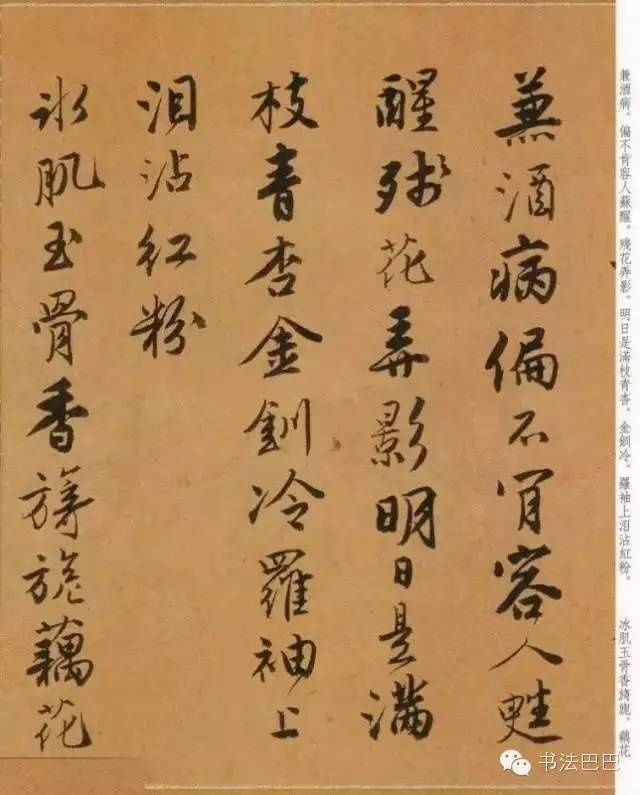 兼酒病。偏不肯容人蘇醒。殘花弄影。明日是滿枝青杏。金釧冷。羅袖上泪沾紅粉。 冰肌玉骨香旖旎。藕花
兼酒病偏不肯容人甦
醒殘花弄影明日是滿
枝青杏金釧冷羅袖上
泪沾紅粉
冰肌玉骨香旖旎藕花
书法巴巴